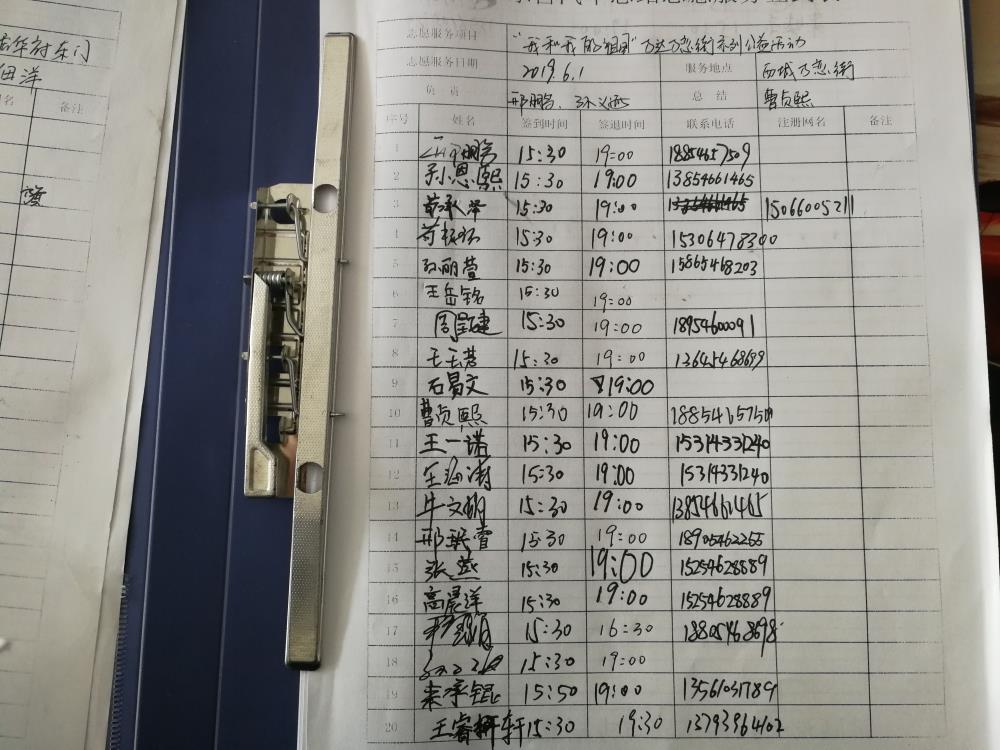 志愿服务项目 "我和我的祖国"万达乃恋街系列公益活动
志愿服务日期 2019.6.1 服务地点 西城乃恋街
负责 邢鹏 总结 曹贞熙
序号 姓名 签到时间 签退时间 联系电话 注册网名 备注
1 15:30 19:00 18854657509
2 孙恩熙 15:30 19:00 13854661465
3 苟承泽 15:30 19:00 15066005211
4 苟 15:30 19:00 15306478300
5 孙丽萱 15:30 19:00 15865468203
6 王岳铭 15:30 19:00
7 周呈建 15:30 19:00 18954600091
8 王玉 15:30 19:00 13645468699
9 石易文 15:30 19:00
10 曹贞熙 15:30 19:00 18854657509
11 王一诺 15:30 19:00 15314331240
12 王海涛 15:30 19:00 15314331240
13 牛文明 15:30 19:00 13854661465
14 邢珉雪 15:30 19:00 18905462255
15 张燕 15:30 19:00 15254628889
16 高晨洋 15:30 19:00 15254628889
17 15:30 16:30 18805468698
18 15:30 19:00
19 秦承锟 15:50 19:00 13561031789
20 王睿轩 15:30 19:30 13793964102
名 备注
东门
洋